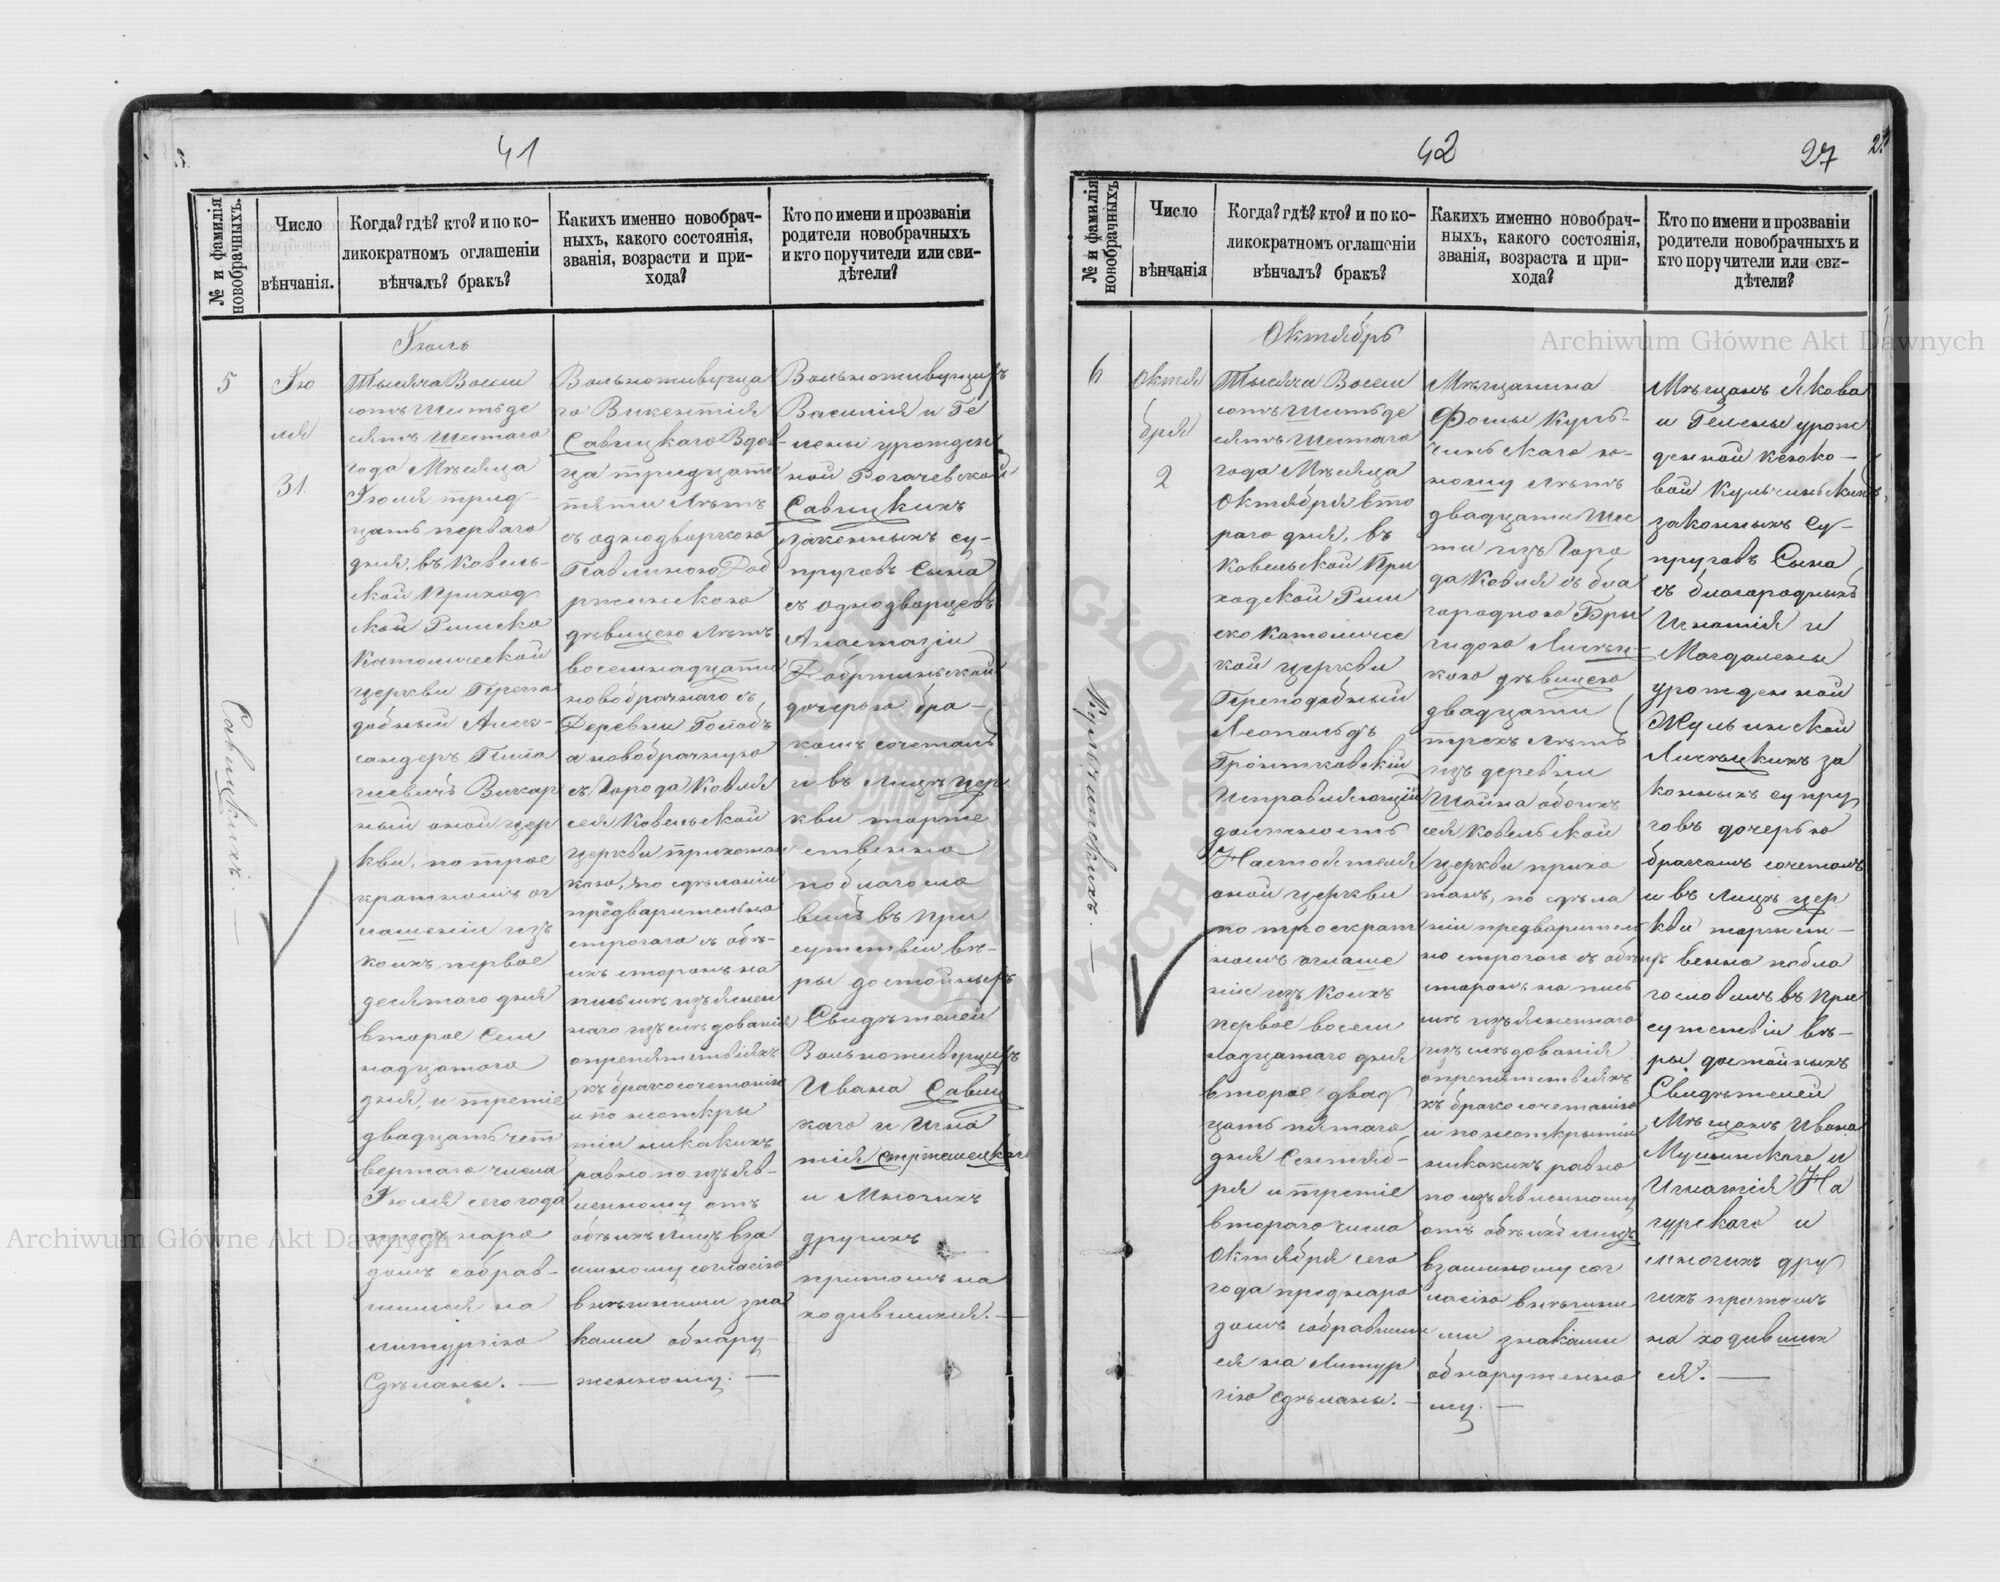 41
№ и фамилія новобрачныхъ.
Число вѣнчанія.
Когда? гдѣ? кто? и по ко-
ликократномъ оглашеніи
вѣнчалъ? бракъ?
Какихъ именно новобрач-
ныхъ, какого состоянія,
званія, возрасти и при-
хода?
Кто по имени и прозванію
родители новобрачныхъ
и кто поручители или сви-
дѣтели?
5
Савицкихъ. —
Ію
ля
31.
Іюль
Тысяча Восем
сотъ Шестьде
сятъ Шестаго
года Мѣсяца
Іюля трид-
цать перваго
дня, въ Ковель-
ской Приход
ской Римско
Католической
церкви Препо
добный Алек-
сандеръ
Викар
ный оной цер
кви, по трое
кратномъ ог
лашеніи изъ
коихъ первое
десятаго дня
второе Сем
надцатаго
дня, и третіе
двадцать чет
вертаго числа
Іюля сего года
предъ наро
домъ собрав-
шимся на
литургію
Сдѣланы. —
Вольноживуща
го Викентія
Савицкаго Вдов-
ца тридцати
пяти лѣтъ
съ однодворкою
Павлиною Доб
ржинскою
дѣвицею лѣтъ
восемнадцати
новобрачнаго съ
Деревни
а новобрачную
съ Города Ковля
сея Ковельской
церкви прихожан
кою, по сдѣланіи
предварительно
строгаго съ обѣ-
ихъ сторонъ на
письмѣ изъяснен
наго изслѣдованія
опрепятствіяхъ
къ бракосочетанію
и по неоткры
тіи никакихъ
равно по изъяв-
ленному отъ
обѣихъ лицъ вза
имному согласію
внѣшними зна
ками обнару-
женному. —
Вольноживущихъ
Василія и Ге
лены урожден
ной Рогачевской
Савицкихъ
законныхъ су-
пруговъ Сына
съ однодворцевъ
Анастазіи
Добржинской
дочерью бра-
комъ сочеталъ
и въ Лицѣ цер
кви торже
ственно
поблагосло
вилъ въ при
сутствіи вѣ-
ры достойныхъ
Свидѣтелей
Вольноживущихъ
Ивана Савиц
каго и Игна
тія Стржелецкаго
и Многихъ
другихъ
притомъ на
ходившихся. —
42
27
№ и фамилія новобрачныхъ
Число
вѣнчанія
Когда? гдѣ? кто? и по ко-
ликократномъ оглашеніи
вѣнчалъ? бракъ?
Какихъ именно новобрач-
ныхъ, какого состоянія,
званія, возраста и при-
хода?
Кто по имени и прозванію
родители новобрачныхъ и
кто поручители или сви-
дѣтели?
6
Кульчинскихъ. —
Октя
бря
2
Октябрь
Тысяча Восем
сотъ Шестьде
сятъ Шестаго
года Мѣсяца
Октября вто
раго дня, въ
Ковельской При
ходской Рим
ско католичес
кой церкви
Преподобный
Леопольдъ
Гронтковскій
Исправляющій
должность
Настоятеля
оной церкви
по троекрат
номъ оглаше
ніи изъ коихъ
первое восем
надцатаго дня
второе двад
цать пятаго
дня Сентяб-
ря и третіе
втораго числа
Октября сего
года предъ наро
домъ собравшим
ся на Литур
гію Сдѣланы. —
Мѣщанина
Фомы Куль-
чинскаго ю-
ношу лѣтъ
двадцати шес
ти изъ Горо
да Ковля съ бла
городною Бры
гидою Лисѣц-
кою дѣвицею
двадцати
трехъ лѣтъ
изъ деревни
Шайна обоихъ
сея Ковельской
церкви прихо
жанъ, по сдѣла
ніи предварител
но строгаго съ обѣихъ
сторонъ на пись
мѣ изъясненнаго
изслѣдованія
опрепятствіяхъ
къ бракосочетанію
и по неоткрытіи
никакихъ равно
по изъявленному
отъ обѣихъ лицъ
взаимному сог
ласію внѣшни
ми знаками
обнаруженно
му. —
Мѣщанъ Якова
и Гелены урож
денной
вой Кульчинскихъ,
законныхъ Су-
пруговъ Сына
съ благородныхъ
Игнатія и
Магдалены
урожденной
Жулинской
Лисѣцкихъ за
конныхъ супру
говъ дочерью
бракомъ сочеталъ
и въ Лицѣ цер
кви торжест-
венно побла
гословилъ въ при
сутствіи вѣ-
ры достойныхъ
Свидѣтелей
Мѣщанъ Ивана
Мушинскаго и
Игнатія На
гурскаго и
многихъ дру
гихъ притомъ
на ходивших
ся. —
Archiwum Główne Akt Dawnych
Archiwum Główne Akt Dawnych